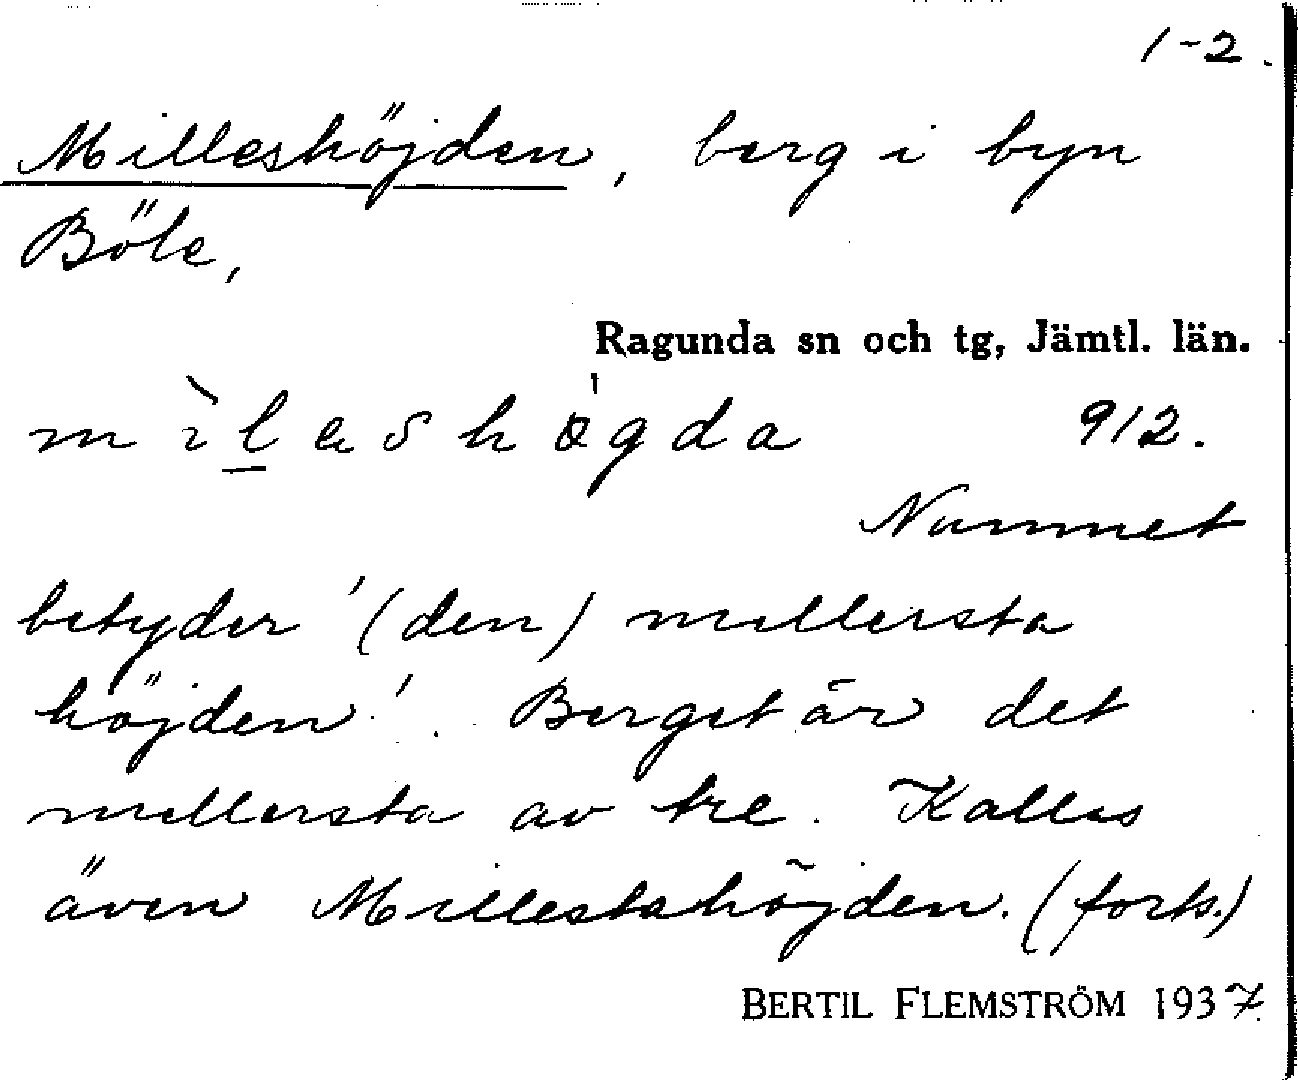 1-2.
Milleshöjden, berg i byn
Böle,
Ragunda sn och tg, Jämtl. län.
912.
Namnet
betyder '(den) mellersta
höjden'. Berget är det
mellersta av tre. Kallas
även Millestahöjden. (forts.)
BERTIL FLEMSTRÖM 1937